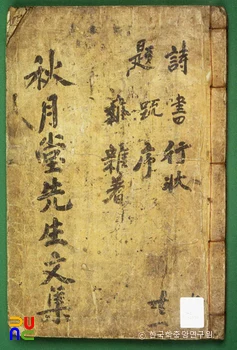 詩書行狀
題跋序
雜著
秋月堂先生文集
ⓒ한국학중앙연구원